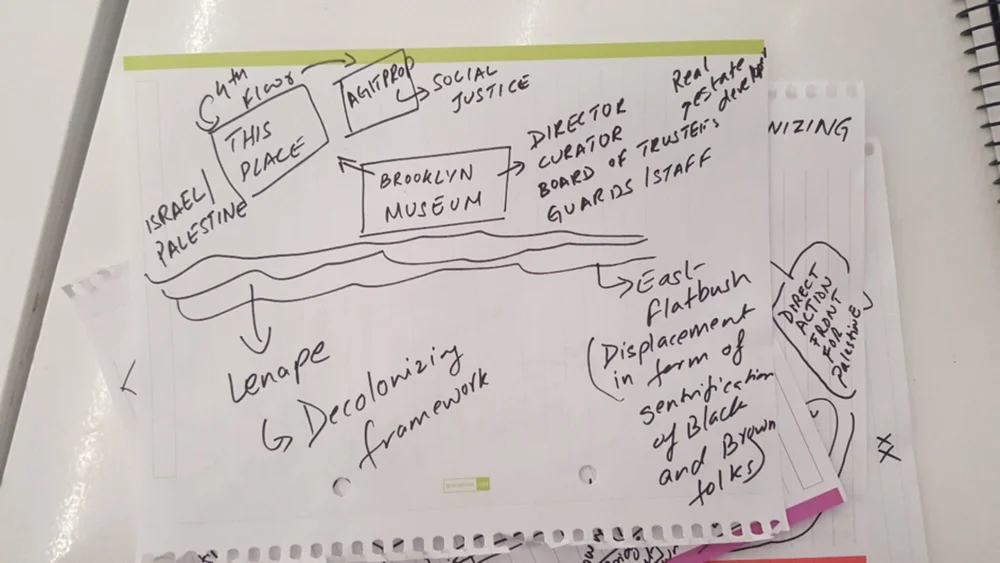 4th
Floor
AGITPROP
SOCIAL
JUSTICE
THIS
PLACE
ISRAEL/
PALESTINE
BROOKLYN
MUSEUM
DIRECTOR
CURATOR
BOARD OF TRUSTEES
GUARDS/STAFF
Real
estate
NIZING
Lenape
Decolonizing
framework
East-
flatbush
(Displacement
in form of
gentrification
of Black
and Brown
folks)
DIRECT
ACTION
FRONT
FOR
Palestine
XX